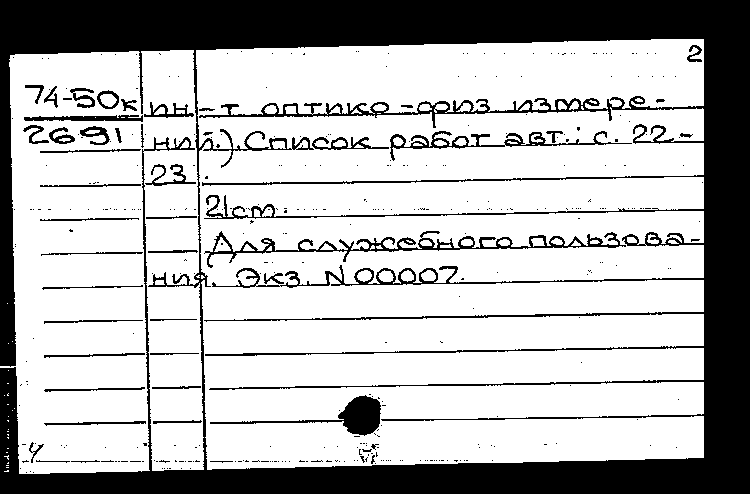 2
74-50к ин-т оптико-физ измере-
2691 ний.). Список работ авт.: с. 22-
23.
21см.
Для служебного пользова-
ния. Экз. N 00007.